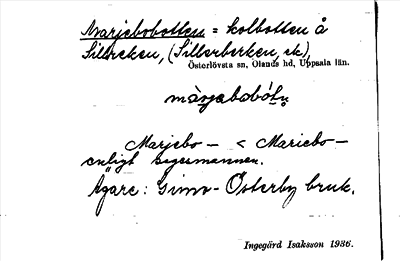 Marjebobotten = kolbotten å
Sillreken, (Sillerberken, sk),
Österlövsta sn, Olands hd, Uppsala län.
màrjebobót
Marjebo – < Mariebo –
enligt sagesmannen.
Ägare: Gimo-Österby bruk.
Ingegärd Isaksson 1936.